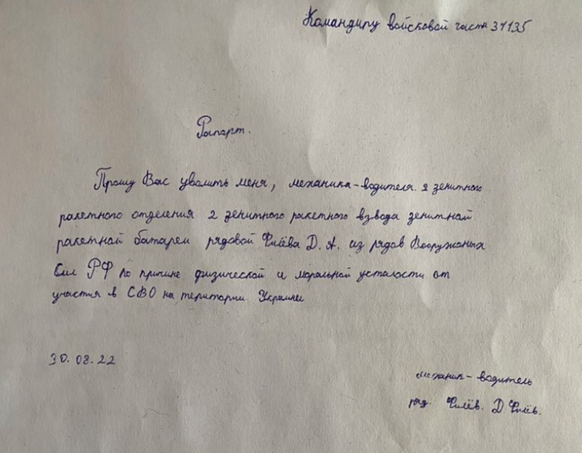 Командиру войсковой части 31135
Рапорт.
Прошу Вас уволить меня, механика-водителя 2 зенитного
ракетного отделения 2 зенитного ракетного взвода зенитной
ракетной батареи рядовой Фиёва Д. А. из рядов Вооружоных
Сил РФ по причине физической и моральной усталости от
участия в СВО на територии Украины
30.08.22
механик-водитель
ряд. Д